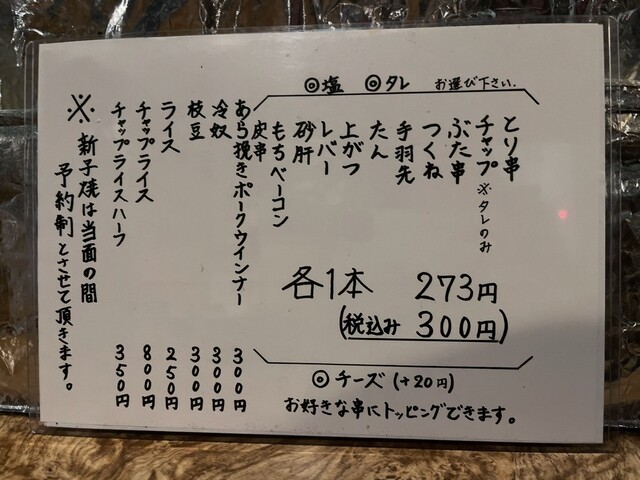 ◎塩 ◎タレ お選び下さい.
とり串
チャップ※タレのみ
ぶた串
つくね
手羽先
たん
上がつ
レバー
砂肝
もちベーコン
皮串
各1本 273円
(税込み 300円)
◎チーズ(+20円)
お好きな串にトッピングできます。
あら挽きポークウインナー 300円
冷奴 300円
枝豆 300円
ライス 250円
チャップライス 800円
チャップライスハーフ 350円
※新子焼は当面の間
予約制とさせて頂きます。